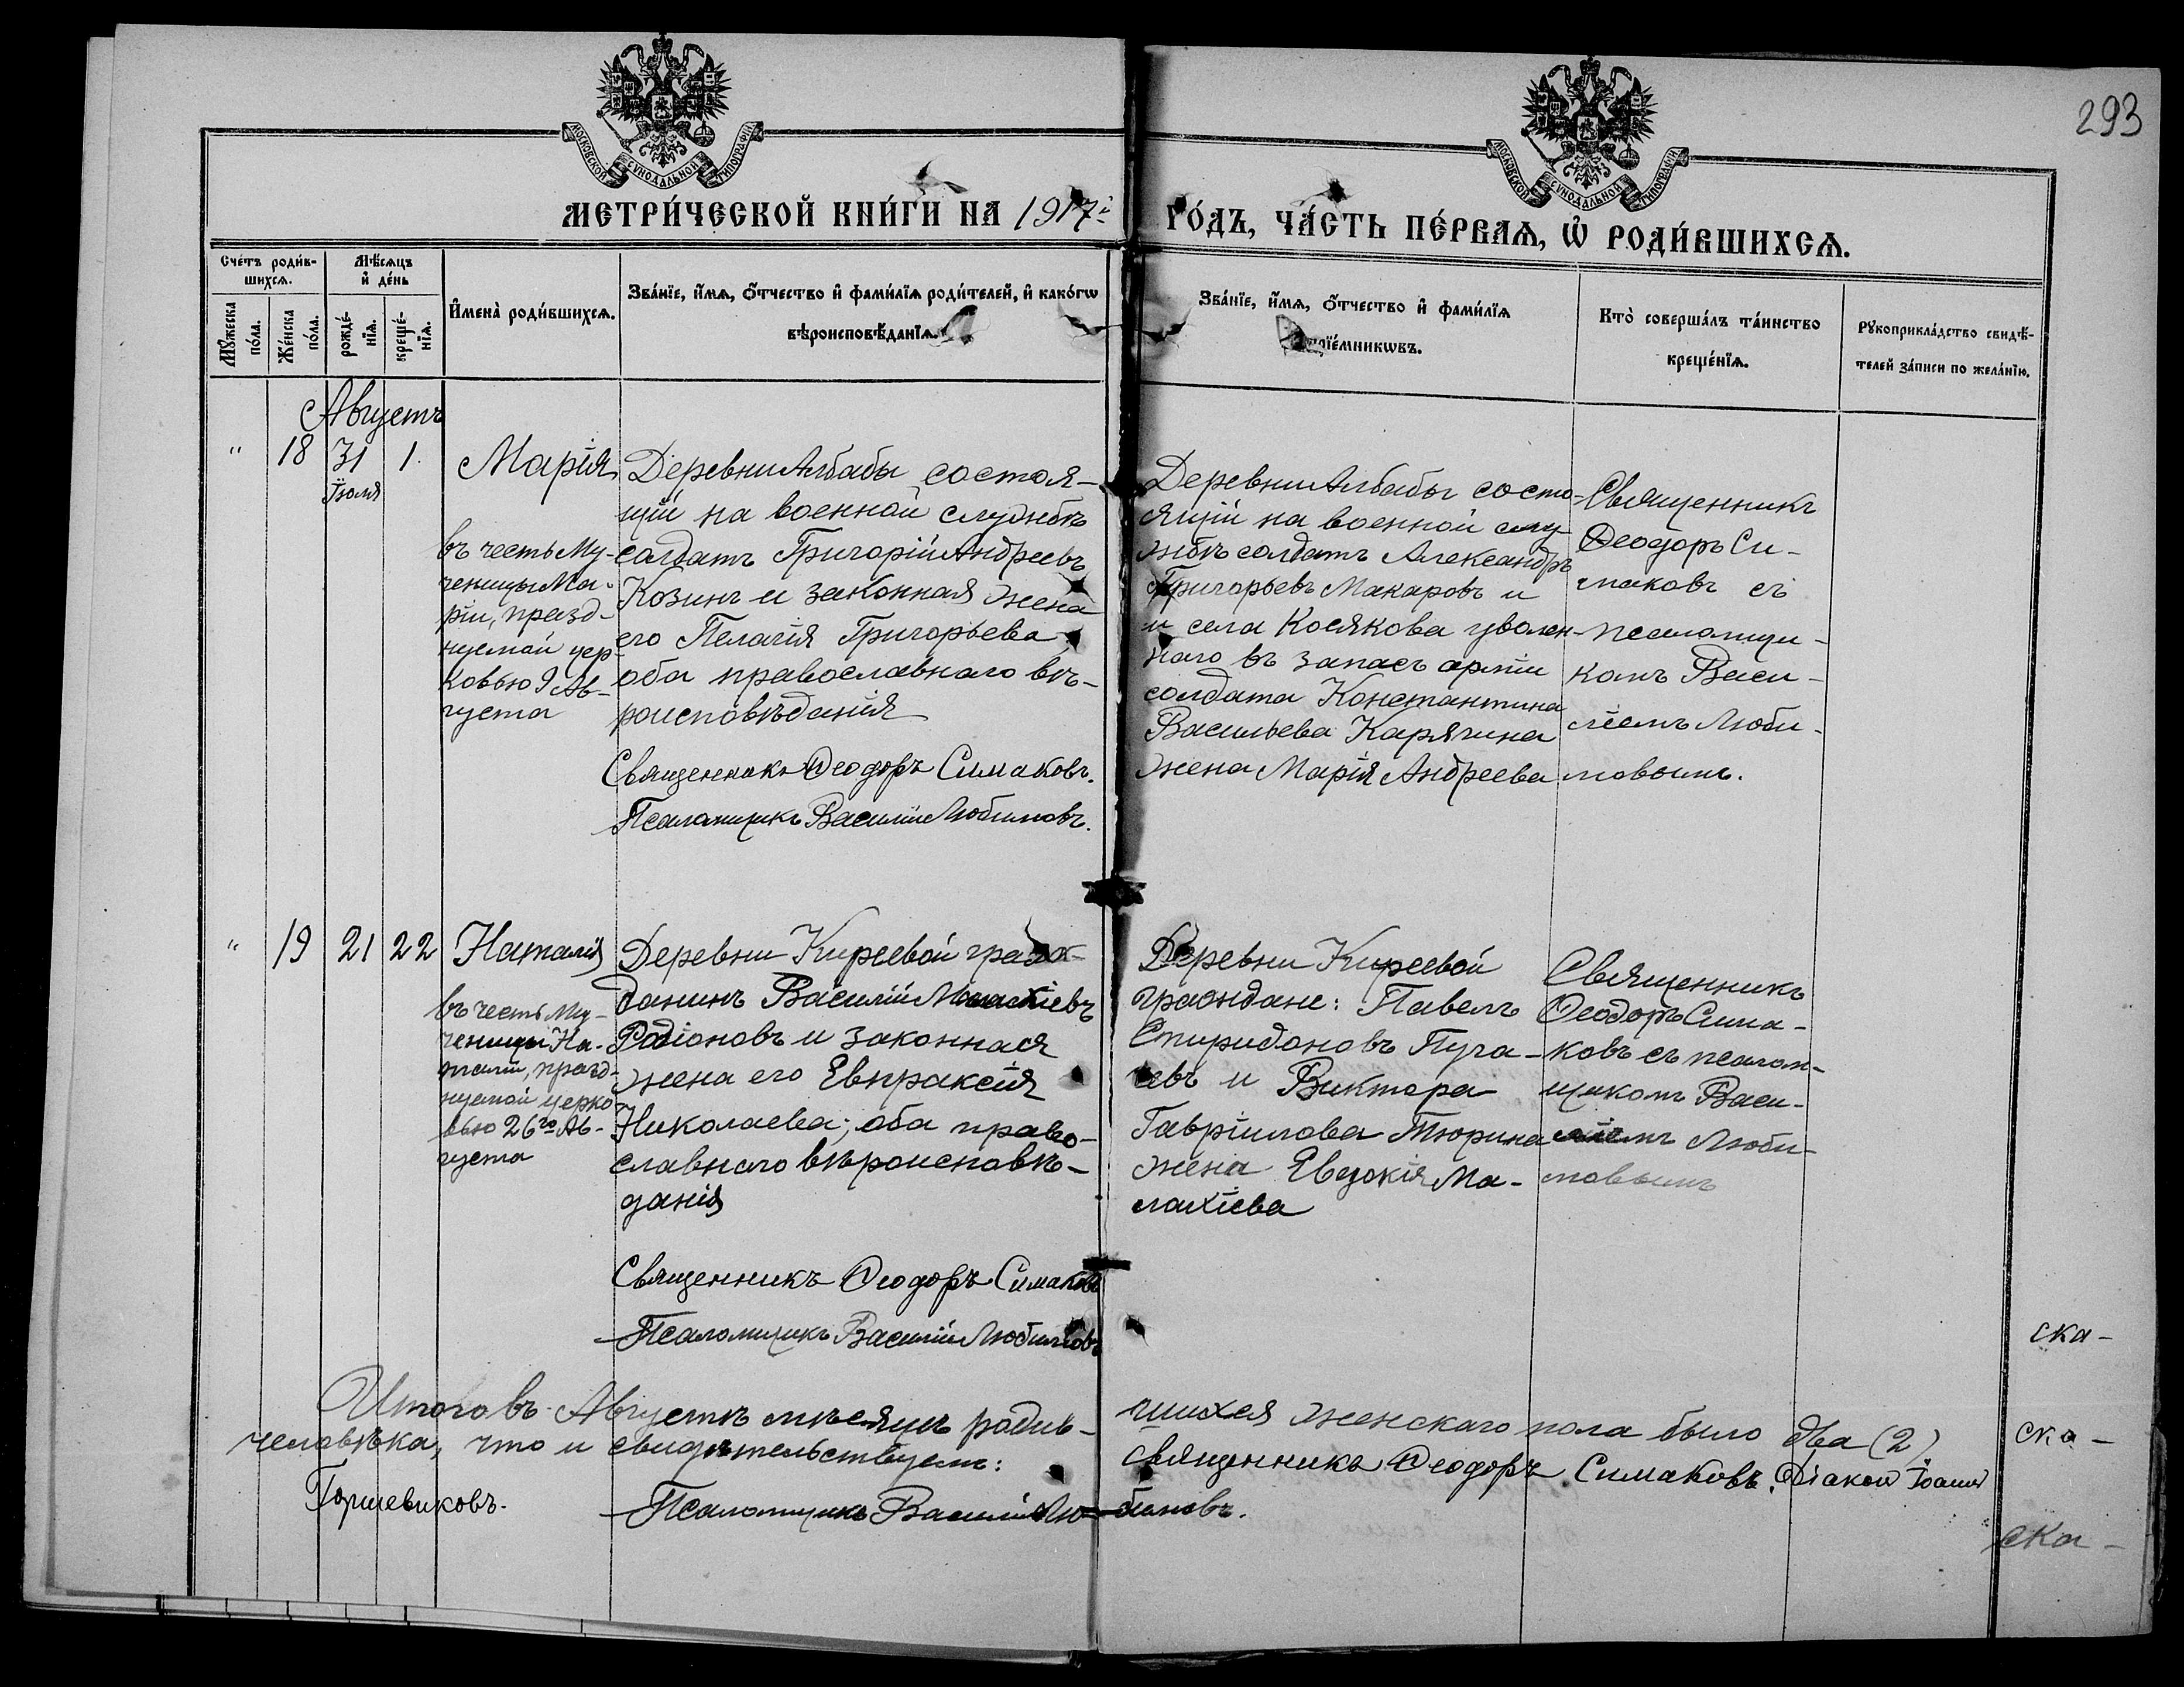 293
МОСКОВСКОЙ СУНОДАЛЬНОЙ ТИПОГРАФІИ
МОСКОВСКОЙ СУНОДАЛЬНОЙ ТИПОГРАФІИ
МЕТРИ́ЧЕСКОЙ КНИ́ГИ НА 1917й ГО́ДЪ, ЧА́СТЬ ПЕ́РВАѦ, Ѡ҆ РОДИ́ВШИХСѦ.
Сче́тъ роди́в-
шихсѧ.
Мꙋ́жеска
по́ла.
Же́нска
по́ла.
Мѣ́сѧцъ
и҆ де́нь
рожде́-
нїѧ.
креще́-
нїѧ.
И҆мена̀ роди́вшихсѧ.
Зва́нїе, и҆́мѧ, ѻ҆́тчество и҆ фами́лїѧ роди́телей, и҆ како́гѡ
вѣроисповѣ́данїѧ.
Зва́нїе, и҆́мѧ, ѻ҆́тчество и҆ фами́лїѧ
прїе́мникѡвъ.
Кто̀ соверша́лъ та́инство
креще́нїѧ.
Рꙋкоприкла́дство свидѣ́-
телей за́писи по жела́нїю.
Августъ
" 18 31 1.
Іюля
Марія
въ честь Му-
ченицы Ма-
ріи, празд-
нуемой цер-
ковью 9 Ав-
густа
Деревни Албабы состоя-
щій на военной службѣ
солдатъ Григорій Андреевъ
Козинъ и законная жена
его Пелагія Григорьева
оба православнаго вѣ-
роисповѣданія
Священникъ Ѳеодоръ Симаковъ.
Псаломщикъ Василій Любимовъ.
Деревни Албабы состо-
ящій на военной слу
жбѣ солдатъ Александръ
Григорьевъ Макаровъ и
и села Косякова уволен-
наго въ запасъ арміи
солдата Константина
Васильева Карягина
жена Марія Андреева
Священникъ
Ѳеодоръ Си-
маковъ съ
псаломщи-
комъ Васи-
ліемъ Люби-
мовымъ.
" 19 21 22
Наталія
въ честь Му-
ченицы На-
таліи, празд-
нуемой церко-
вью 26го Ав-
густа
Деревни Киреевой граж-
данинъ Василій Малахіевъ
Родіоновъ и законная
жена его Евпраксія
Николаева; оба право-
славнаго вѣроисповѣ-
данія
Священникъ Ѳеодоръ Симаковъ
Псаломщикъ Василій Любимовъ
Деревни Киреевой
граждане: Павелъ
Спиридоновъ Пуга-
чевъ и Виктора
Гавріилова Тюрина
жена Евдокія Ма-
лахіева
Священникъ
Ѳеодоръ Сима-
ковъ съ псалом-
щикомъ Васи-
ліемъ Люби-
мовымъ
Итого въ Августѣ мѣсяцѣ родив-шихся женскаго пола было два (2)
человѣка, что и свидѣтельствуемъ: Священникъ Ѳеодоръ Симаковъ. Діакон Іоанн
Горшевиковъ. Псаломщикъ Василій Любимовъ.
ска-
ска-
ска-